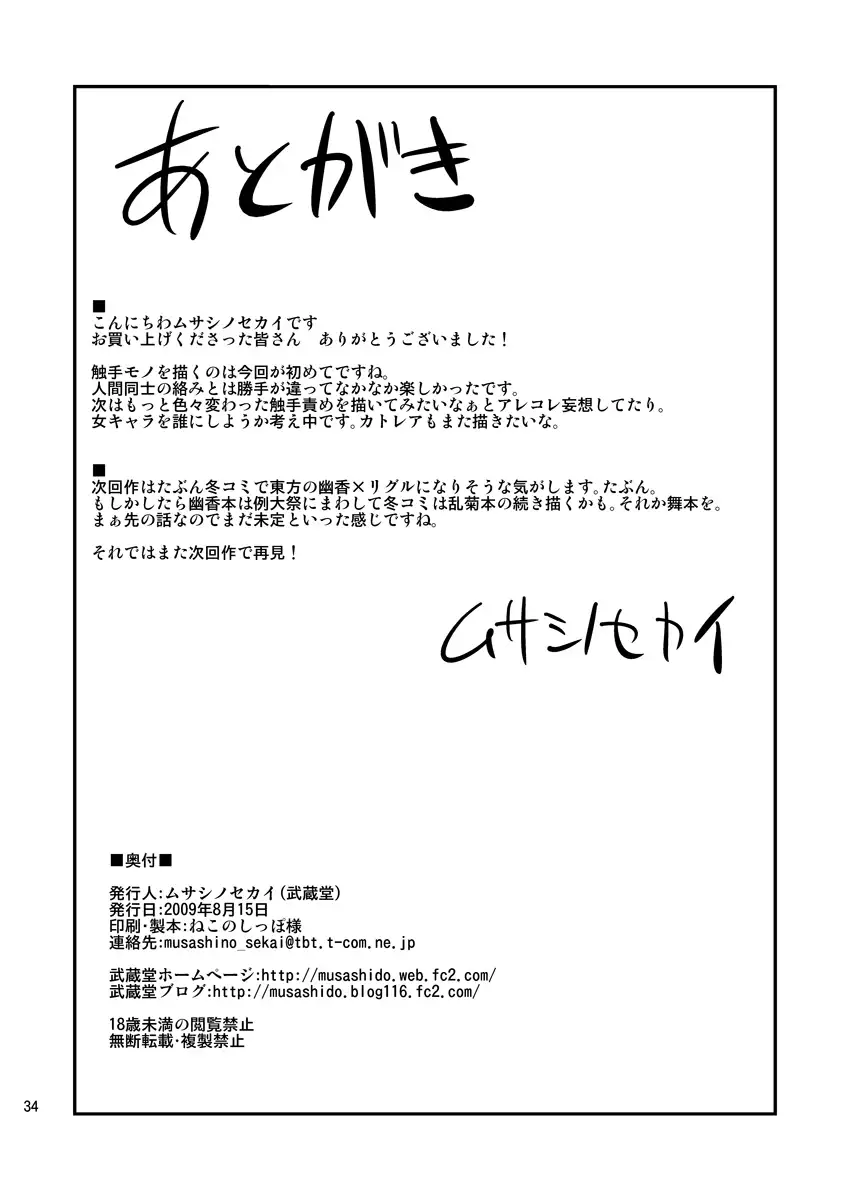 あとがき
■
こんにちわムサシノセカイです
お買い上げくださった皆さん　ありがとうございました！
触手モノを描くのは今回が初めてですね。
人間同士の絡みとは勝手が違ってなかなか楽しかったです。
次はもっと色々変わった触手責めを描いてみたいなぁとアレコレ妄想してたり。
女キャラを誰にしようか考え中です。カトレアもまた描きたいな。
■
次回作はたぶん冬コミで東方の幽香×リグルになりそうな気がします。たぶん。
もしかしたら幽香本は例大祭にまわして冬コミは乱菊本の続き描くかも。それか舞本を。
まぁ先の話なのでまだ未定といった感じですね。
それではまた次回作で再見！
ムサシノセカイ
■奥付■
発行人:ムサシノセカイ(武蔵堂)
発行日:2009年8月15日
印刷･製本:ねこのしっぽ様
連絡先:musashino_sekai@tbt.t-com.ne.jp
武蔵堂ホームページ:http://musashido.web.fc2.com/
武蔵堂ブログ:http://musashido.blog116.fc2.com/
18歳未満の閲覧禁止
無断転載･複製禁止
34